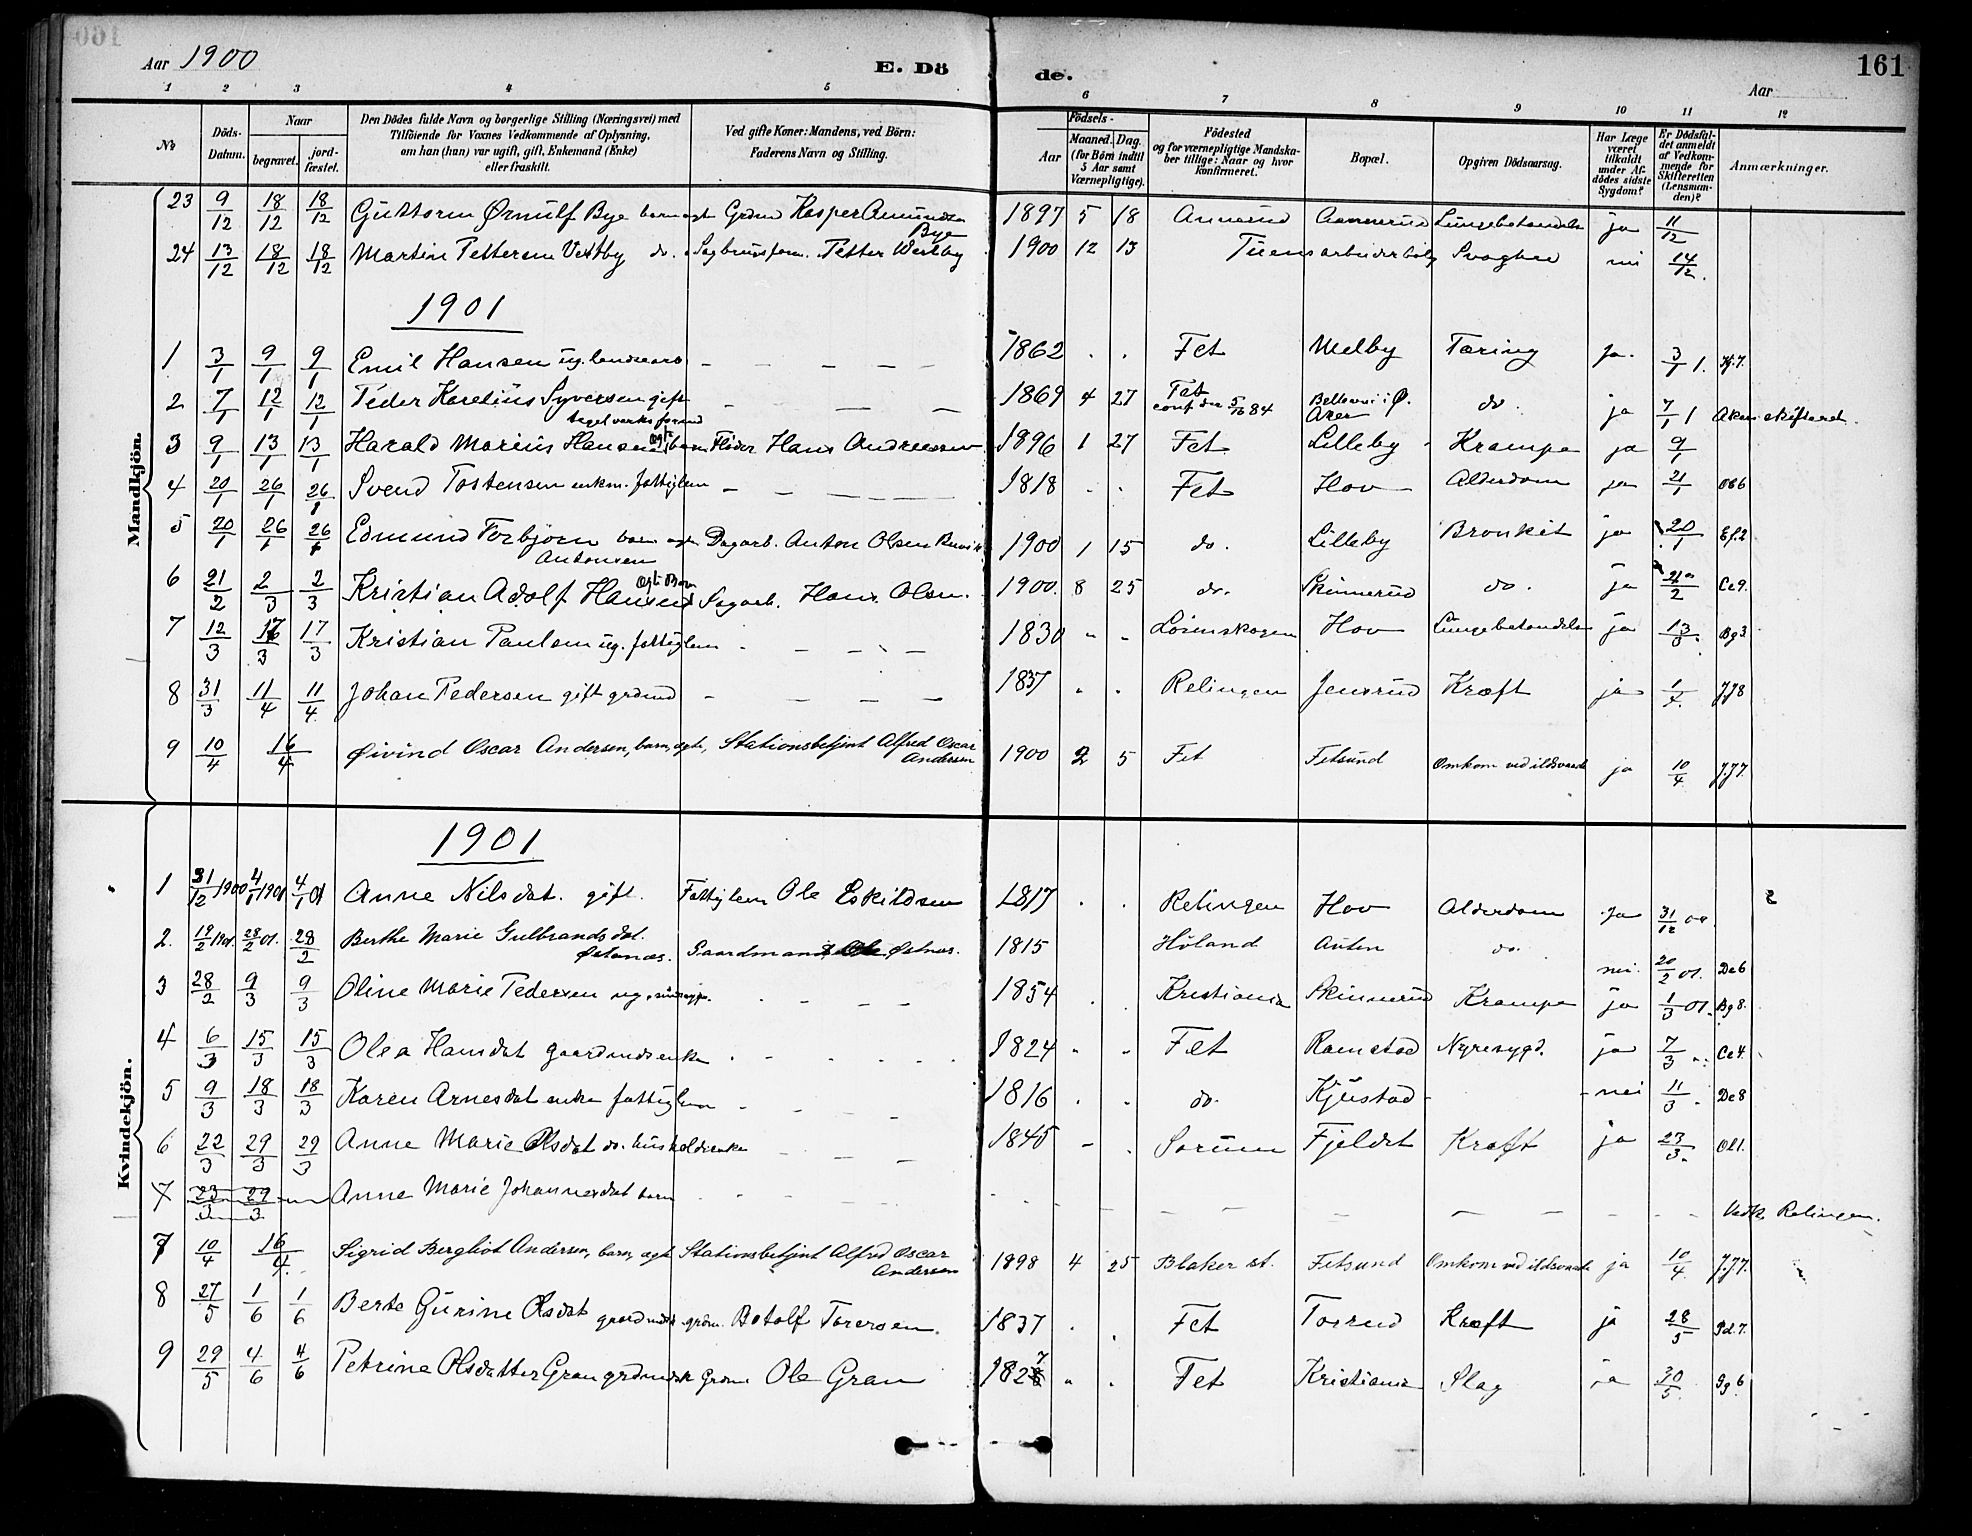 Aar 1900 E. Dö de. Aar 161
1 2 3 4 5 6 7 8 9 10 11 12
No Döds-Datum. Naar begravet. jord-fæstet. Den Dödes fulde Navn og borgerlige Stilling (Næringsvei) med Tilföiende for Voxnes Vedkommende af Oplysning, om han (hun) var ugift, gift, Enkemand (Enke) eller fraskilt. Ved gifte Koner: Mandens, ved Börn: Faderens Navn og Stilling. Födsels- Aar Maaned. Dag. (for Börn indtil 5 Aar samt Værnepligtige). Födested og for værnepligtige Mandskaber tillige: Naar og hvor konfirmeret. Bopæl. Opgiven Dödsaarsag. Har Læge været tilkaldt under Afdödes sidste Sygdom? Er Dödsfaldet anmeldt af Vedkommende for Skifteretten (Lensmanden)? Anmærkninger.
Mandkjön.
23 9/12 18/12 18/12 Guttorm Ørnulf Bye barn ægte Grdmd Kasper Amundsen Bye 1897 5 18 Annerud Annerud Lungebetændelse ja 11/12
24 13/12 18/12 18/12 Martin Pettersen Vestby do. Sagbrugsform. Petter Vestby 1900 12 13 Tuens arbeiderbolig Svaghed nei 14/12.
1901
1 3/1 9/1 9/1 Emil Hansen ug. - - - - - 1862 . . Fet Melby Tæring ja. 3/1 1.
2 7/1 12/1 12/1 Peder Karelius Syversen gift teglverksformd - - - - 1869 4 27 Fet conf. der 5/10 84 i Ø. Aker do. ja 7/1 1 Aker skifteret.
3 9/1 13/1 13/1 Harald Marius Hansen ægte barn Fløder Hans Andreassen 1896 1 27 Fet Lilleby Krampe ja 9/1
4 20/1 26/1 26/1 Svend Tostensen enkm. fattiglem - - - - - 1818 . . Fet Hov Alderdom ja 21/1
5 20/1 26/1 26/1 Edmund Torbjørn Antonsen barn ægte Dagarb. Anton Olsen 1900 1 15 do. Lilleby Bronkit ja 20/1 Ef.2
6 21/2 2/3 2/3 Kristian Adolf Hansen Ægte Barn Sagarb. Hans Olsen. 1900. 8 25 do. Skinnerud do. ja 21/2 Ce9.
7 12/3 17/3 17/3 Kristian Paulsen ug. fattiglem - - - - 1830 - - Lørenskogen Hov Lungebetændelse ja 13/3. Bg3
8 31/3 11/4 11/4 Johan Pedersen gift grdmd - - - - 1837 . . Relingen Jensrud Kræft ja 1/4. JJ8
9 10/4 16/4 Øivind Oscar Andersen, barn, ægte, Stationsbetjent Alfred Oscar Andersen 1900 2 5 Fet Fetsund Omkom ved ildsvaade ja 10/4 J.J7.
Kvindekjön.
1901
1 31/12 1900 4/1 1901 4/1 01 Anne Nilsdat. gift. Fattiglem Ole Eskildsen 1817 . . Relingen Hov Alderdom Ja 31/12 00
2. 19/2 1901. 28/2 01. 28/2 Berthe Marie Gulbrandsdat. Østenæs. Gaardmand Østnæs. 1815 Høland Auten do. nei. 20/2 01. De6
3 28/2 9/3 9/3 Oline Marie Pedersen ug. - - - - 1854 . Kristiania Skinnerud Krampe ja 1/3 01. Bg8.
4 6/3 15/3 15/3 Olea Hansdat gaardmdsenke . . . . . 1824 - - Fet Ramstad Nyresygd. ja 7/3 . Ce4.
5 9/3 18/3 18/3 Karen Arnesdat enke fattiglem - - - - 1816 . . do. Kjustad - - nei 11/3. De8
6 22/3 29/3 29/3 Anne Marie Olsdat do. husholderske - - - - 1845 - . Sørum Fjeldet Kræft ja 23/3.
7 23/3 29/3 Anne Marie Johannesdat barn - - - - - - - - - - - - Vedk. Relingen.
7 10/4 16/4. Sigrid Bergliot Andersen, barn, ægte Stationsbetjent Alfred Oscar Andersen 1898 4 25 Blaker st. Fetsund Omkom ved ildsvaade ja 10/4. J.J7.
8 27/5 1/6 1/6 Berte Gurine Olsdat gaardmdsk grdm. Botolf Torersen. 1837 . . Fet Torrud Kræft ja 28/5
9 29/5 4/6 4/6 Petrine Olsdatter Gran grdmdsk Grdm Ole Gran 1827 . . Fet Kristiania Slag ja 30/5.